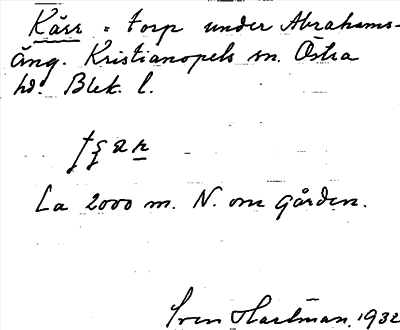 Kärr = torp under Abrahams-
äng. Kristianopels sn. Östra
hd. Blek. l.
Ca 2000 m. N. om gården.
Sven Hartman, 1932